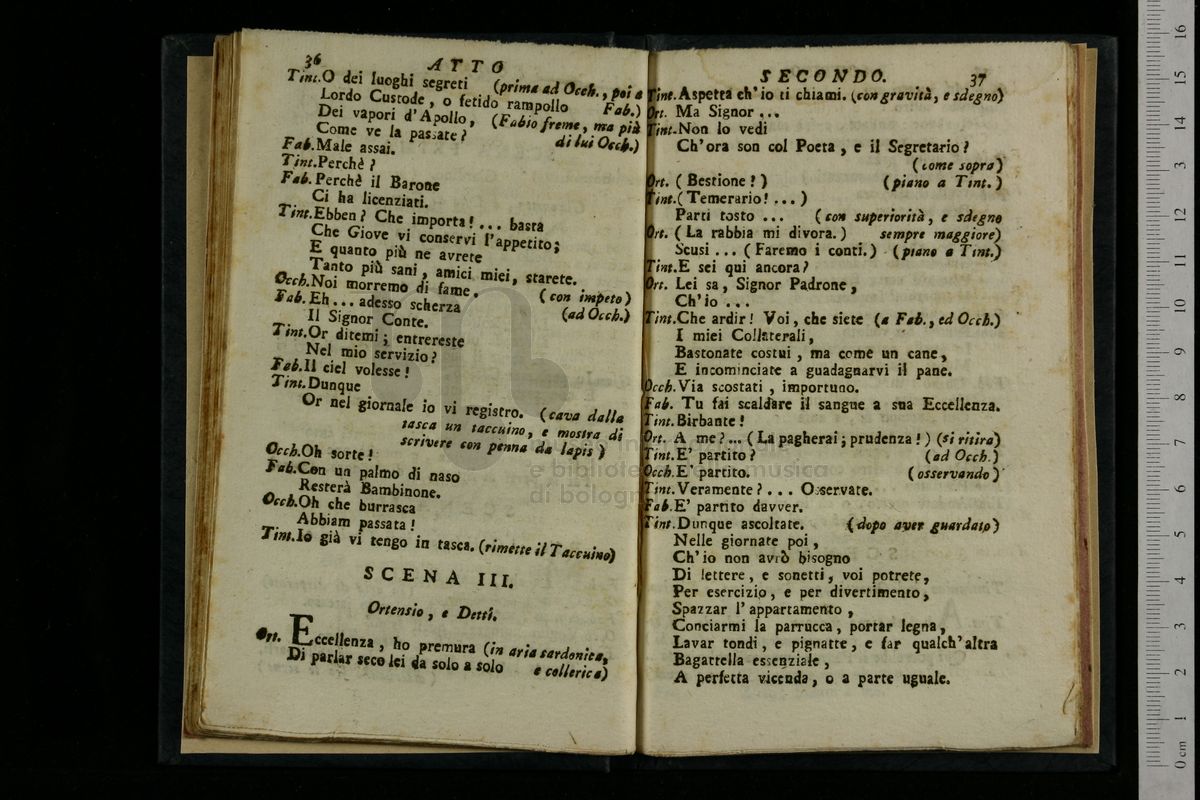 36 ATTO
Tint. O dei luoghi segreti (prima ad Occh., poi a
Lordo Custode, o fetido rampollo Fab.)
Dei vapori d'Apollo, (Fabio freme, ma più
Come ve la passate? di lui Occh.)
Fab. Male assai.
Tint. Perchè?
Fab. Perchè il Barone
Ci ha licenziati.
Tint. Ebben? Che importa!... basta
Che Giove vi conservi l'appetito;
E quanto più ne avrete
Tanto più sani, amici miei, starete.
Occh. Noi morremo di fame. (con impeto)
Fab. Eh... adesso scherza (ad Occh.)
Il Signor Conte.
Tint. Or ditemi; entrereste
Nel mio servizio?
Fab. Il ciel volesse!
Tint. Dunque
Or nel giornale io vi registro. (cava dalla
tasca un taccuino, e mostra di
scrivere con penna da lapis)
Occh. Oh sorte!
Fab. Con un palmo di naso
Resterà Bambinone.
Occh. Oh che burrasca
Abbiam passata!
Tint. Io già vi tengo in tasca. (rimette il Taccuino)
SCENA III.
Ortensio, e Detti.
Ort. Eccellenza, ho premura (in aria sardonica,
Di parlar seco lei da solo a solo e collerica)
SECONDO. 37
Tint. Aspetta ch'io ti chiami. (con gravità, e sdegno)
Ort. Ma Signor...
Tint. Non lo vedi
Ch'ora son col Poeta, e il Segretario?
(come sopra)
Ort. (Bestione!) (piano a Tint.)
Tint. (Temerario!...)
Parti tosto... (con superiorità, e sdegno
Ort. (La rabbia mi divora.) sempre maggiore)
Scusi... (Faremo i conti.) (piano a Tint.)
Tint. E sei qui ancora?
Ort. Lei sa, Signor Padrone,
Ch'io...
Tint. Che ardir! Voi, che siete (a Fab., ed Occh.)
I miei Collaterali,
Bastonate costui, ma come un cane,
E incominciate a guadagnarvi il pane.
Occh. Via scostati, importuno.
Fab. Tu fai scaldare il sangue a sua Eccellenza.
Tint. Birbante!
Ort. A me?... (La pagherai; prudenza!) (si ritira)
Tint. E' partito? (ad Occh.)
Occh. E' partito. (osservando)
Tint. Veramente?... Osservate.
Fab. E' partito davver.
Tint. Dunque ascoltate. (dopo aver guardato)
Nelle giornate poi,
Ch'io non avrò bisogno
Di lettere, e sonetti, voi potrete,
Per esercizio, e per divertimento,
Spazzar l'appartamento,
Conciarmi la parrucca, portar legna,
Lavar tondi, e pignatte, e far qualch'altra
Bagattella essenziale,
A perfetta vicenda, o a parte uguale.
e biblioteca della musica
di bologna
0 cm 1 2 3 4 5 6 7 8 9 10 11 12 13 14 15 16